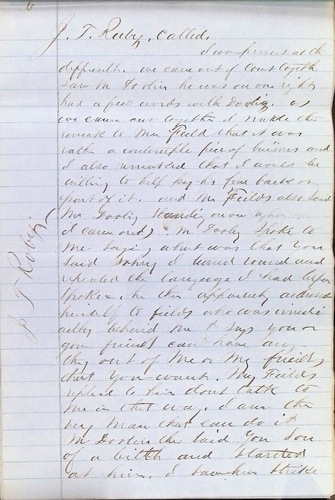 6
J. T. Ruby, Called.
I was present at the
difficulty. we came out of Court together
saw Mr Dooly he was on our right
had a few words with Dooly. as
we came out together I made the
remark to Mr Field that it was
rather a contemptible piece of business and
I also remarked that I would be
willing to help pay his fine back or
part of it. and Mr Fields also said
Mr Dooly standing on our
I came Mr Dooly spoke to
me says, what was that you
said Sonny I turned round and
repeated the language I had before
spoken. he then apparently addressed
himself to fields who was immedi
ately behind me & says you or
your friends can have any
thing out of me or my friends
that you want. Mr Fields
replied to him dont talk to
me in that way. I am the
very man that can do it
Mr Doolin he said you Son
of a bitch and started
at him. I saw him strike
J T Ruby